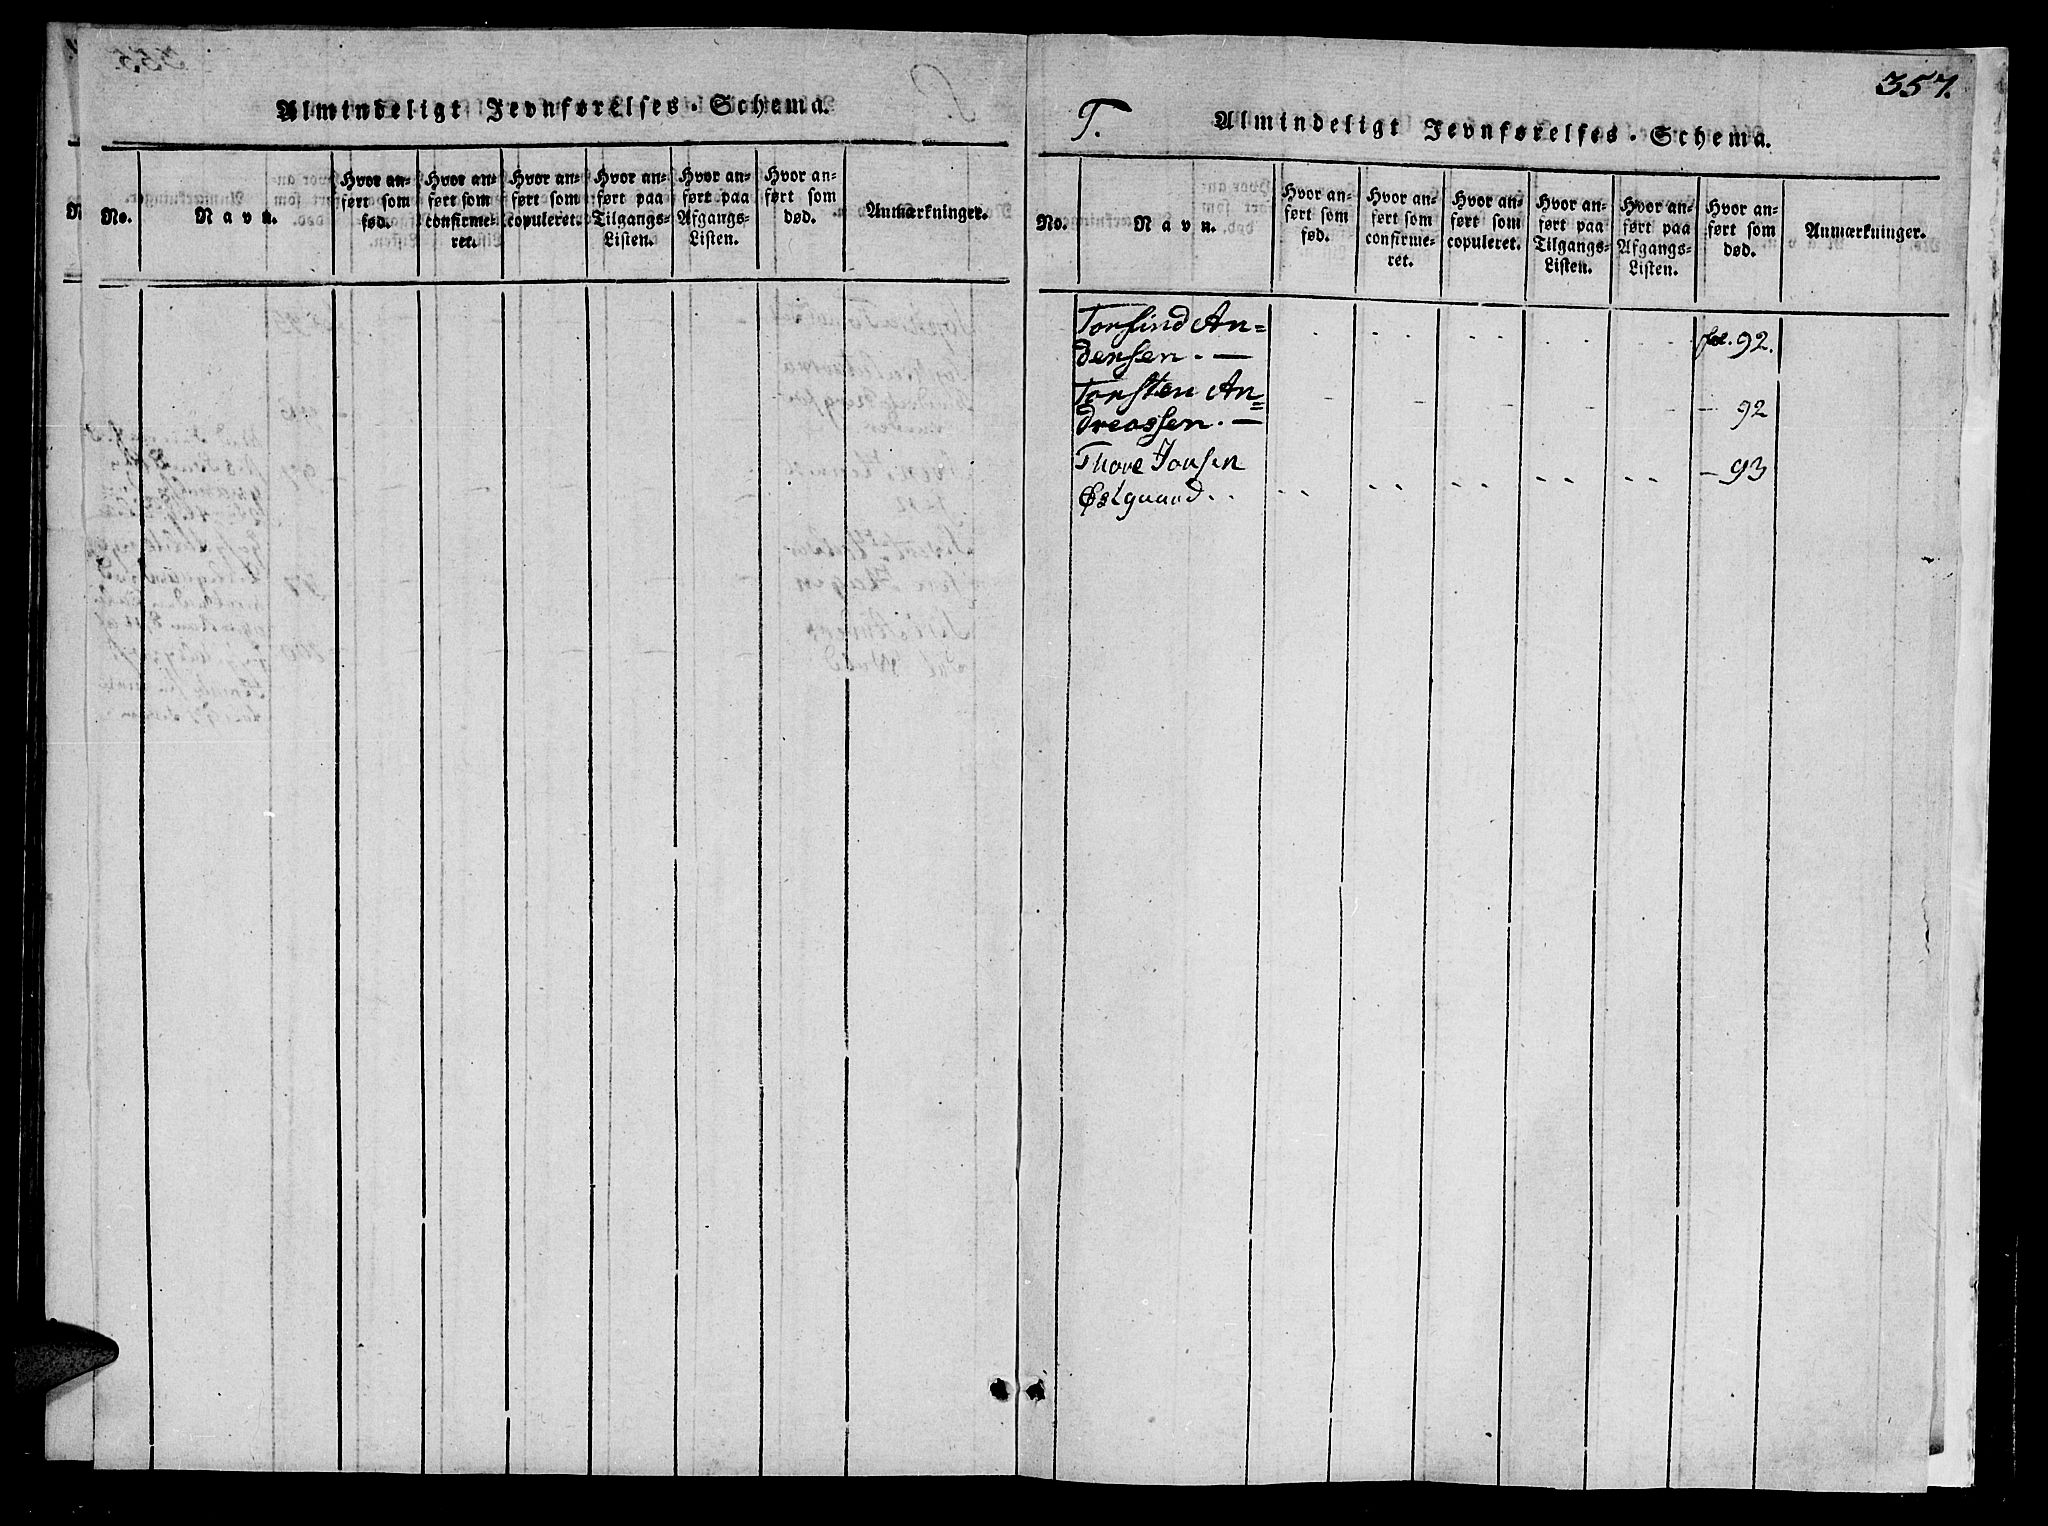 Almindeligt Jevnførelses-Schema.
No.
Navn.
Hvor an-
ført som
fød.
Hvor an-
ført som
confirme-
ret.
Hvor an-
ført som
copuleret.
Hvor an-
ført paa
Tilgangs-
Listen.
Hvor an-
ført paa
Afgangs-
Listen.
Hvor an-
ført som
død.
Anmærkninger.
357.
T.
Almindeligt Jevnførelses-Schema.
No.
Navn.
Hvor an-
ført som
fød.
Hvor an-
ført som
confirme-
ret.
Hvor an-
ført som
copuleret.
Hvor an-
ført paa
Tilgangs-
Listen.
Hvor an-
ført paa
Afgangs-
Listen.
Hvor an-
ført som
død.
Anmærkninger.
Torfind An=
dersen. — fol. 92.
Torsten An=
dreassen. — — 92
Thore Jonsen — 93
Østgaard . .